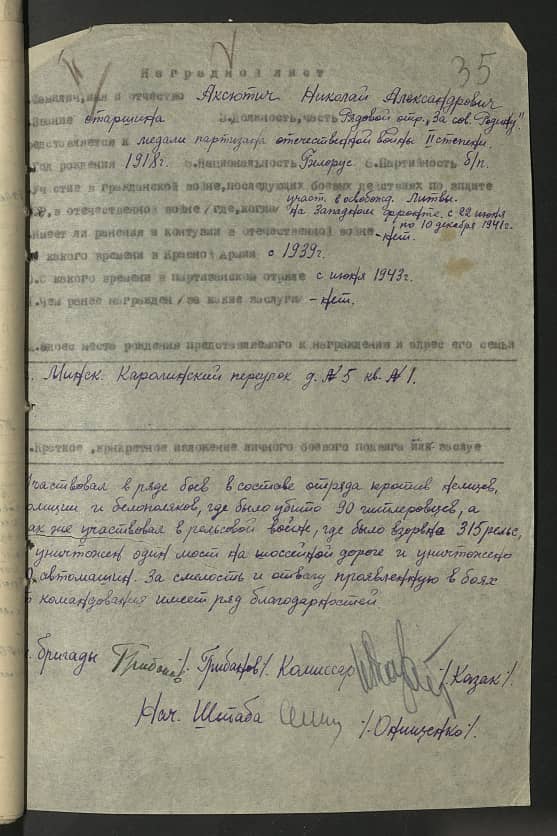 35
Наградной лист
.Фамилия, имя и отчество Аксютич Николай Александрович
.Звание старшина 3.Должность, часть Рядовой отр. "За сов. Родину".
редставляется к медали партизана отечественной войны II степени.
.Год рождения 1918г. 5.Национальность Белорус 6.Партийность б/п.
.Участие в гражданской войне, последующих боевых действиях по защите
участ. в освобожд. Литвы.
Р, в отечественной войне /где, когда/ на Западном фронте. с 22 июня
по 10 декабря 1941г.
.Имеет ли ранения и контузии в отечественной войне - нет.
С какого времени в Красной Армии с 1939г.
.С какого времени в партизанском отряде с июня 1943г.
.Чем ранее награжден /за какие заслуги - нет.
.Адрес место рождения представляемого к награждению и адрес его семьи
. Минск. Каролинский переулок д. №5 кв. №1.
.Краткое, конкретное изложение личного боевого подвига или заслуг
Участвовал в ряде боев в составе отряда против немцев,
олиции и белополяков, где было убито 90 гитлеровцев, а
ак же участвовал в рельсовой войне, где было взорвна 315 рельс,
уничтожен один мост на шоссейной дороге и уничтожено
автомашин. За смелость и отвагу проявленную в боях
т командования имеет ряд благодарностей.
. бригады /. Грибанов/. Комиссар /. Казак/.
Нач. Штаба /. Онищенко/.